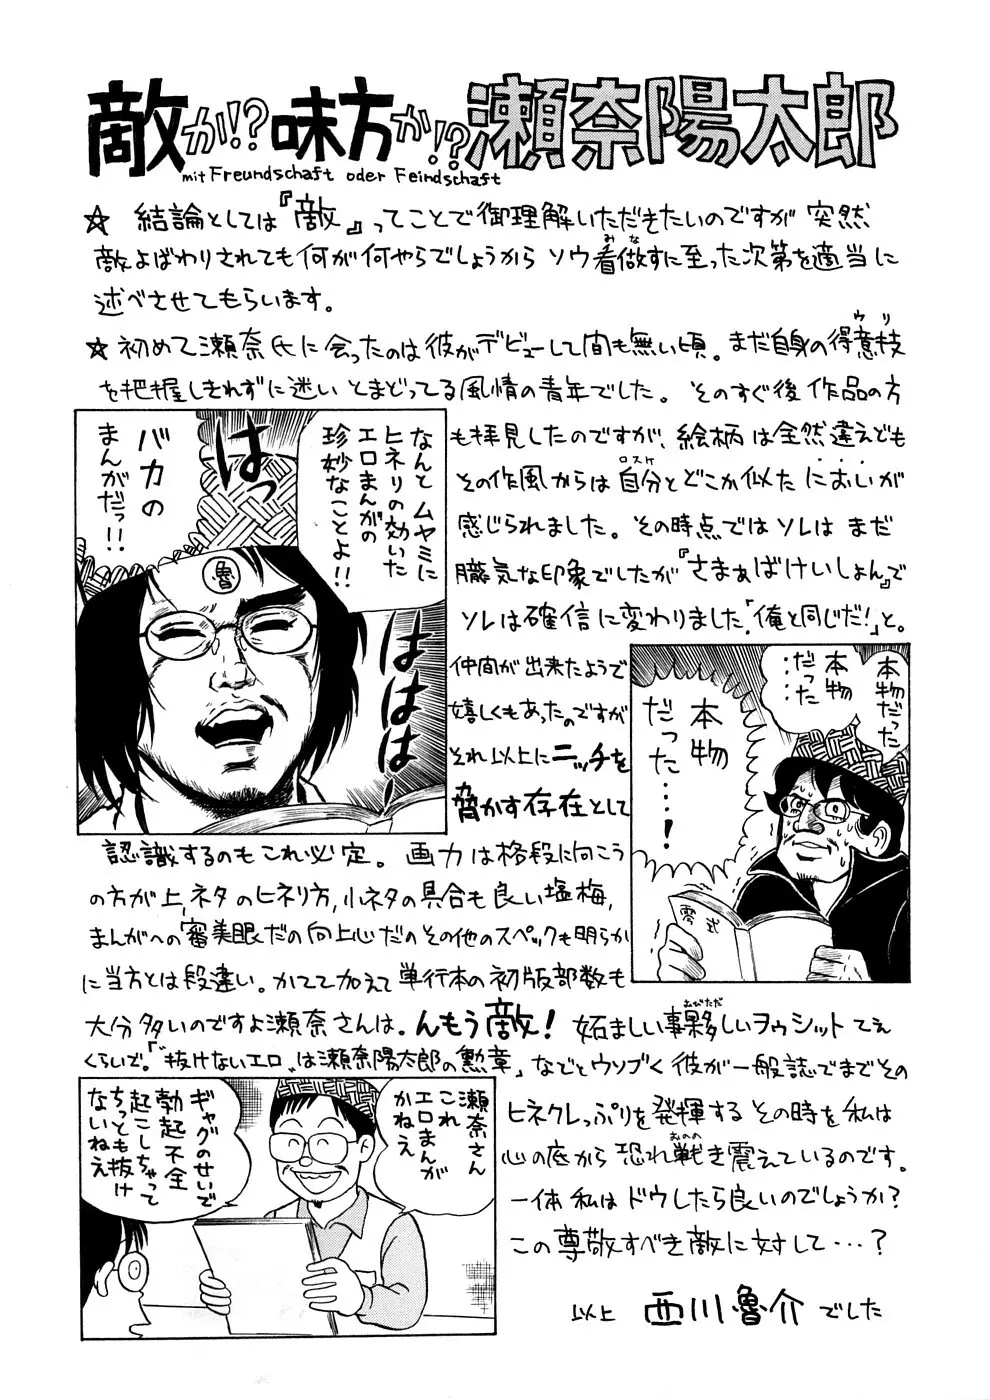 敵か!?味方か!?瀬奈陽太郎
mit Freundschaft oder Feindschaft
☆ 結論としては『敵』ってことで御理解いただきたいのですが 突然
敵よばわりされても何が何やらでしょうから ソウ看做すに至った次第を適当に
みな
述べさせてもらいます。
☆初めて瀬奈氏に会ったのは彼がデビューして間も無い頃。まだ自身の得意技
ウリ
を把握しきれずに迷い とまどってる風情の青年でした。 そのすぐ後 作品の方
も拝見したのですが、絵柄は全然違えども
その作風からは自分とどこか似たにおいが
ロスケ
感じられました。その時点ではソレはまだ
朧気な印象でしたが『さまぁばけいしょん』で
ソレは確信に変わりました「俺と同じだ!」と。
なんとムヤミに
ヒネリの効いた
エロまんがの
珍妙なことよ!!
はっ
バカの
まんがだっ!!
魯
ははは
仲間が出来たようで
嬉しくもあったのですが
それ以上にニッチを
脅かす存在として
本物だった
本物
だった……
本物
だった……!
零式
認識するのもこれ必定。画力は格段に向こう
の方が上、ネタのヒネリ方,小ネタの具合も良い塩梅,
まんがへの審美眼だの向上心だのその他のスペックも明らか
に当方とは段違い。かてて加えて単行本の初版部数も
大分多いのですよ瀬奈さんは。んもう敵! 妬ましい事夥しいヲゥシットてぇ
おびただ
くらいで。「〝抜けないエロ〟は瀬奈陽太郎の勲章」などとウソブく彼が一般誌でまでその
ヒネクレっぷりを発揮するその時を私は
心の底から恐れ戦き震えているのです。
おのの
一体私はドウしたら良いのでしょうか?
この尊敬すべき敵に対して…?
瀬奈さん
これ
エロまんが
かねえ
ギャグのせいで
勃起不全
起こしちゃって
ちっとも抜け
ないねえ
以上 西川魯介でした